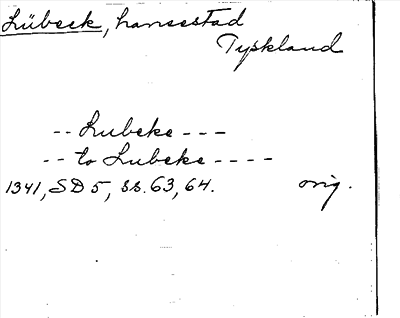 Lübeck, hansestad
Tyskland
-- Lubeke ---
-- to Lubeke ----
1341, SD 5, ss. 63, 64. orig.